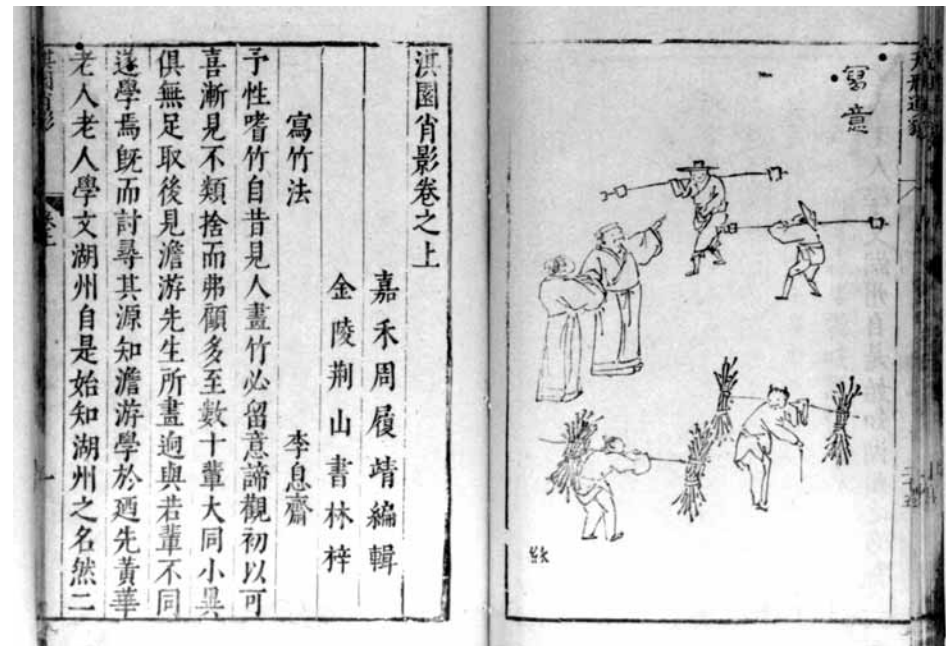 天形道貌
寫意
淇園肖影卷之上
嘉禾周履靖編輯
金陵荆山書林梓
寫竹法 李息齋
予性嗜竹自昔見人畫竹必留意諦觀初以可
喜漸見不類捨而弗顧多至數十輩大同小異
俱無足取後見澹游先生所畫迥與若輩不同
遂學焉旣而討尋其源知澹游學於廼先黃華
老人老人學文湖州自是始知湖州之名然二
淇園肖影
卷上
一